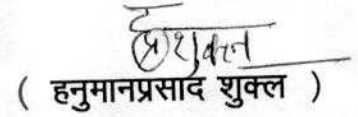 ( हनुमानप्रसाद शुक्ल )